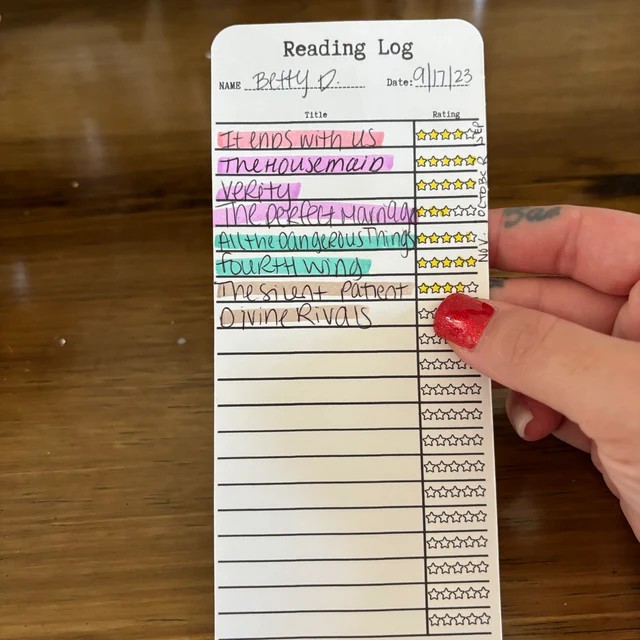 Reading Log
NAME Betty D. Date: 9/17/23
Title Rating
It ends with us
The Housemaid
Verity
The perfect Marriage
All the Dangerous Things
Fourth Wing
The silent Patient
Divine Rivals
SEP
OCTOBER
NOV.